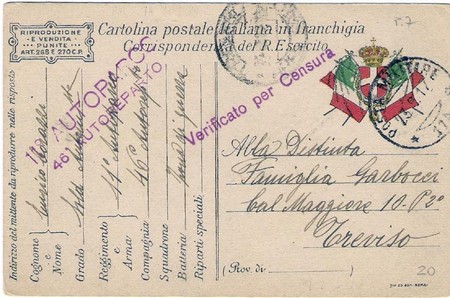 RIPRODUZIONE
E VENDITA
PUNITE
ART. 285 E 270 C.P.
Cartolina postale Italiana in franchigia
Corrispondenza del R. Esercito
11° AUTOPARCO
46° AUTOREPARTO
Verificato per Censura
POSTA MILITARE
Indirizzo del mittente da riprodurre nella risposta
Cognome e Nome
Grado
Reggimento e Arma 11° Autoparco
Compagnia 46° Autoreparto
Squadrone
Batteria
Riparti speciali
Alla Distinta
Famiglia Garbocci
Cal Maggiore 10 - P2°
Treviso
(Prov. di )
20